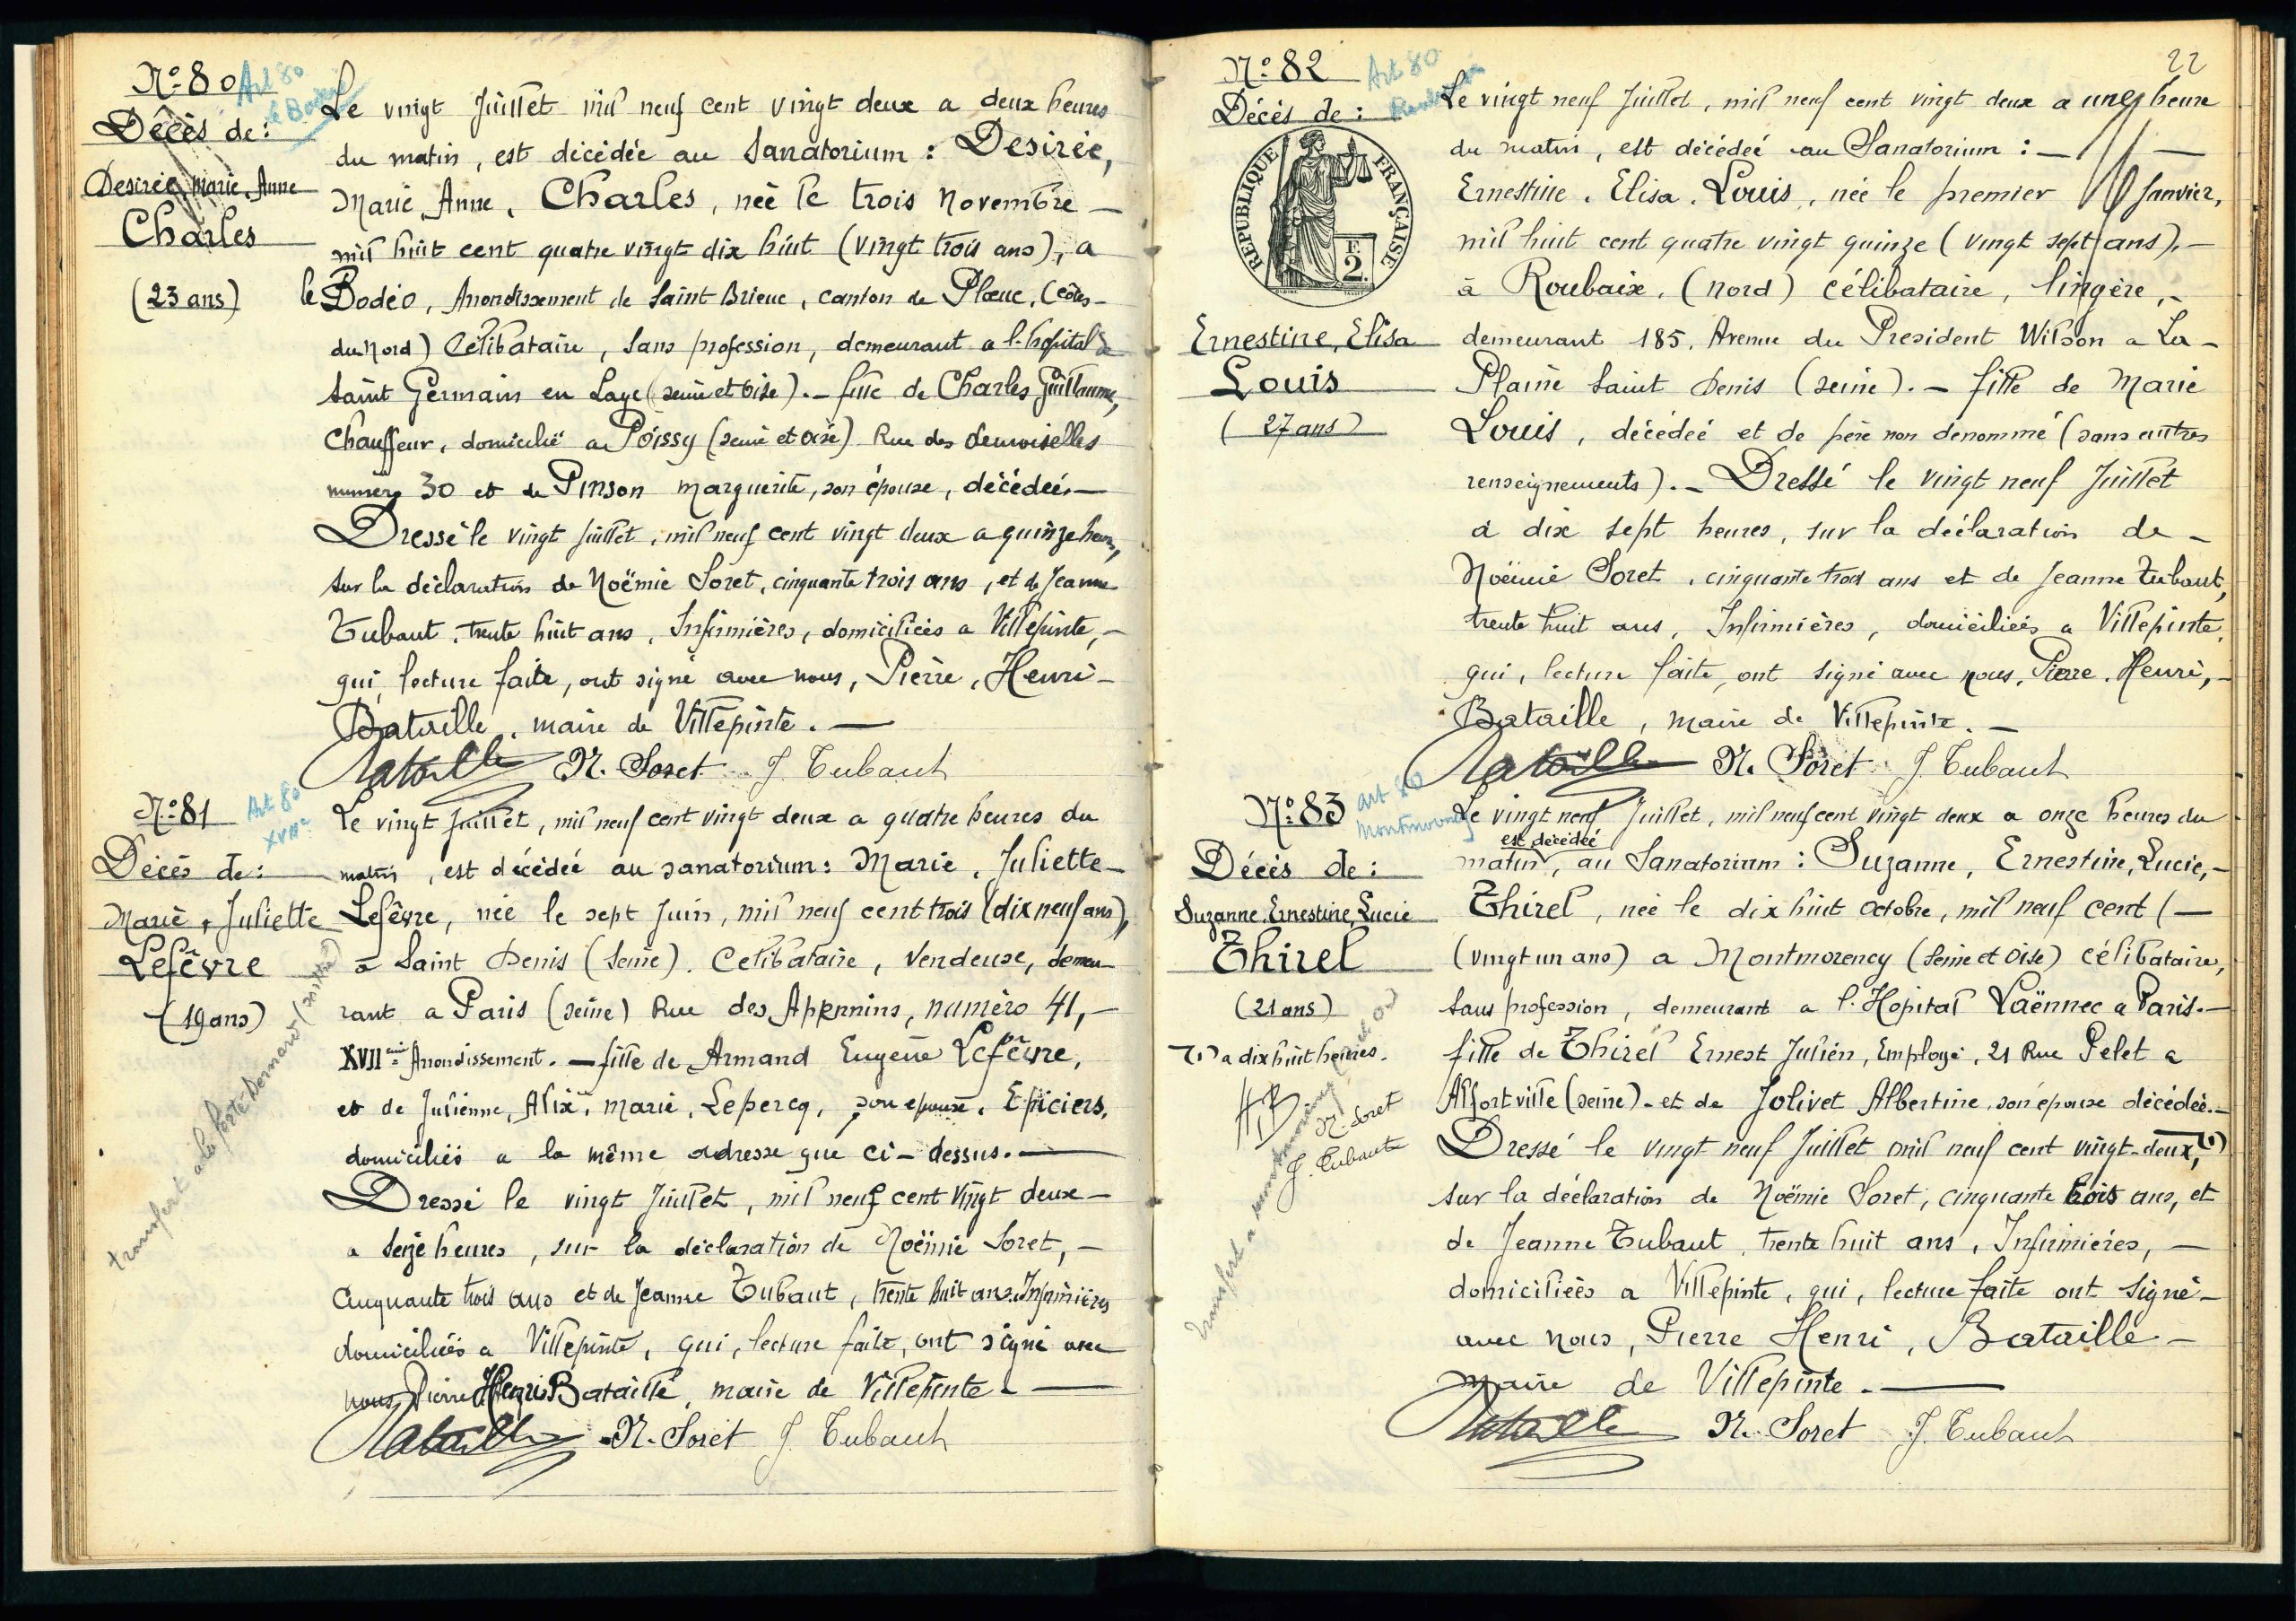 N° 80
Art 80
le Bodéo
Décès de :
Desirée, Marie, Anne
Charles
(23 ans)
Le vingt Juillet mil neuf cent vingt deux a deux heures
du matin, est décédée au Sanatorium : Desirée,
Marie, Anne, Charles, née le trois Novembre —
mil huit cent quatre vingt dix huit (vingt trois ans), a
le Bodéo, Arrondissement de Saint Brieuc, canton de Plœuc, (Côtes-
du Nord) Célibataire, sans profession, demeurant a l'hopital de
Saint Germain en Laye (seine et oise). — fille de Charles Guillaume,
Chauffeur, domicilié a Poissy (seine et oise) Rue des demoiselles
numéro 30 et de Pinson Marguerite, son épouse, décédée. —
Dressé le vingt Juillet, mil neuf cent vingt deux a quinze heures,
sur la déclaration de Noëmie Soret, cinquante trois ans, et de Jeanne
Tubaut, trente huit ans, Infirmières, domiciliées a Villepinte, —
qui, lecture faite, ont signé avec nous, Pierre, Henri —
Bataille, maire de Villepinte. —
Bataille N. Soret J. Tubaut
N° 81
Art 80
XVIIe
Décès de :
Marie, Juliette
Lefêvre
(19 ans)
transfert a la
Le vingt Juillet, mil neuf cent vingt deux a quatre heures du
matin, est décédée au sanatorium : Marie, Juliette —
Lefêvre, née le sept Juin, mil neuf cent trois (dix neuf ans),
a Saint Denis (Seine). Celibataire, Vendeuse, demeu
rant a Paris (seine) Rue des Apennins, numéro 41, —
XVIIème Arrondissement. — fille de Armand Eugène Lefêvre,
et de Julienne, Alix, Marie, Lepercq, son epouse, Epiciers,
domiciliés a la même adresse que ci-dessus. —
Dressé le vingt Juillet, mil neuf cent vingt deux —
a seize heures, sur la déclaration de Noëmie Soret, —
Cinquante trois ans et de Jeanne Tubaut, trente huit ans, Infirmières
domiciliées a Villepinte, qui, lecture faite, ont signé avec
nous Pierre Henri Bataille, maire de Villepinte. —
Bataille N. Soret J. Tubaut
22
N° 82
Art 80
Décès de :
REPUBLIQUE FRANÇAISE
F.
2.
Ernestine, Elisa
Louis
(27 ans)
Le vingt neuf Juillet, mil neuf cent vingt deux a une heure
du matin, est décédée au Sanatorium : —
Ernestine, Elisa, Louis, née le premier Janvier,
mil huit cent quatre vingt quinze (vingt sept ans), —
à Roubaix, (Nord) célibataire, lingère, —
demeurant 185, Avenue du President Wilson a La —
Plaine Saint Denis (seine). — fille de Marie
Louis, décédée et de père non denommé (sans autres
renseignements). — Dressé le vingt neuf Juillet
à dix sept heures, sur la déclaration de —
Noëmie Soret, cinquante trois ans et de Jeanne Tubaut,
trente huit ans, Infirmières, domiciliées a Villepinte,
qui, lecture faite, ont signé avec nous, Pierre, Henri, —
Bataille, maire de Villepinte. —
Bataille N. Soret J. Tubaut
N° 83
art 80
Montmorency
Décès de :
Suzanne, Ernestine, Lucie
Thirel
(21 ans)
(1) a dix huit heures.
HB
N. Soret
J. Tubaut
transfert a montmorency
Le vingt neuf Juillet, mil neuf cent vingt deux a onze heures du
est décédée
matin, au Sanatorium : Suzanne, Ernestine, Lucie, —
Thirel, née le dix huit octobre, mil neuf cent (—
(vingt un ans) a Montmorency (Seine et Oise) célibataire,
sans profession, demeurant a l'Hopital Laënnec a Paris. —
fille de Thirel Ernest Julien, Employé, 21 Rue Pelet a
Alfortville (seine). et de Jolivet Albertine, son épouse décédée. —
Dressé le vingt neuf Juillet mil neuf cent vingt-deux, (1)
sur la déclaration de Noëmie Soret, cinquante trois ans, et
de Jeanne Tubaut, trente huit ans, Infirmières, —
domiciliées a Villepinte, qui, lecture faite ont signé —
avec nous, Pierre Henri, Bataille —
maire de Villepinte. —
Bataille N. Soret J. Tubaut